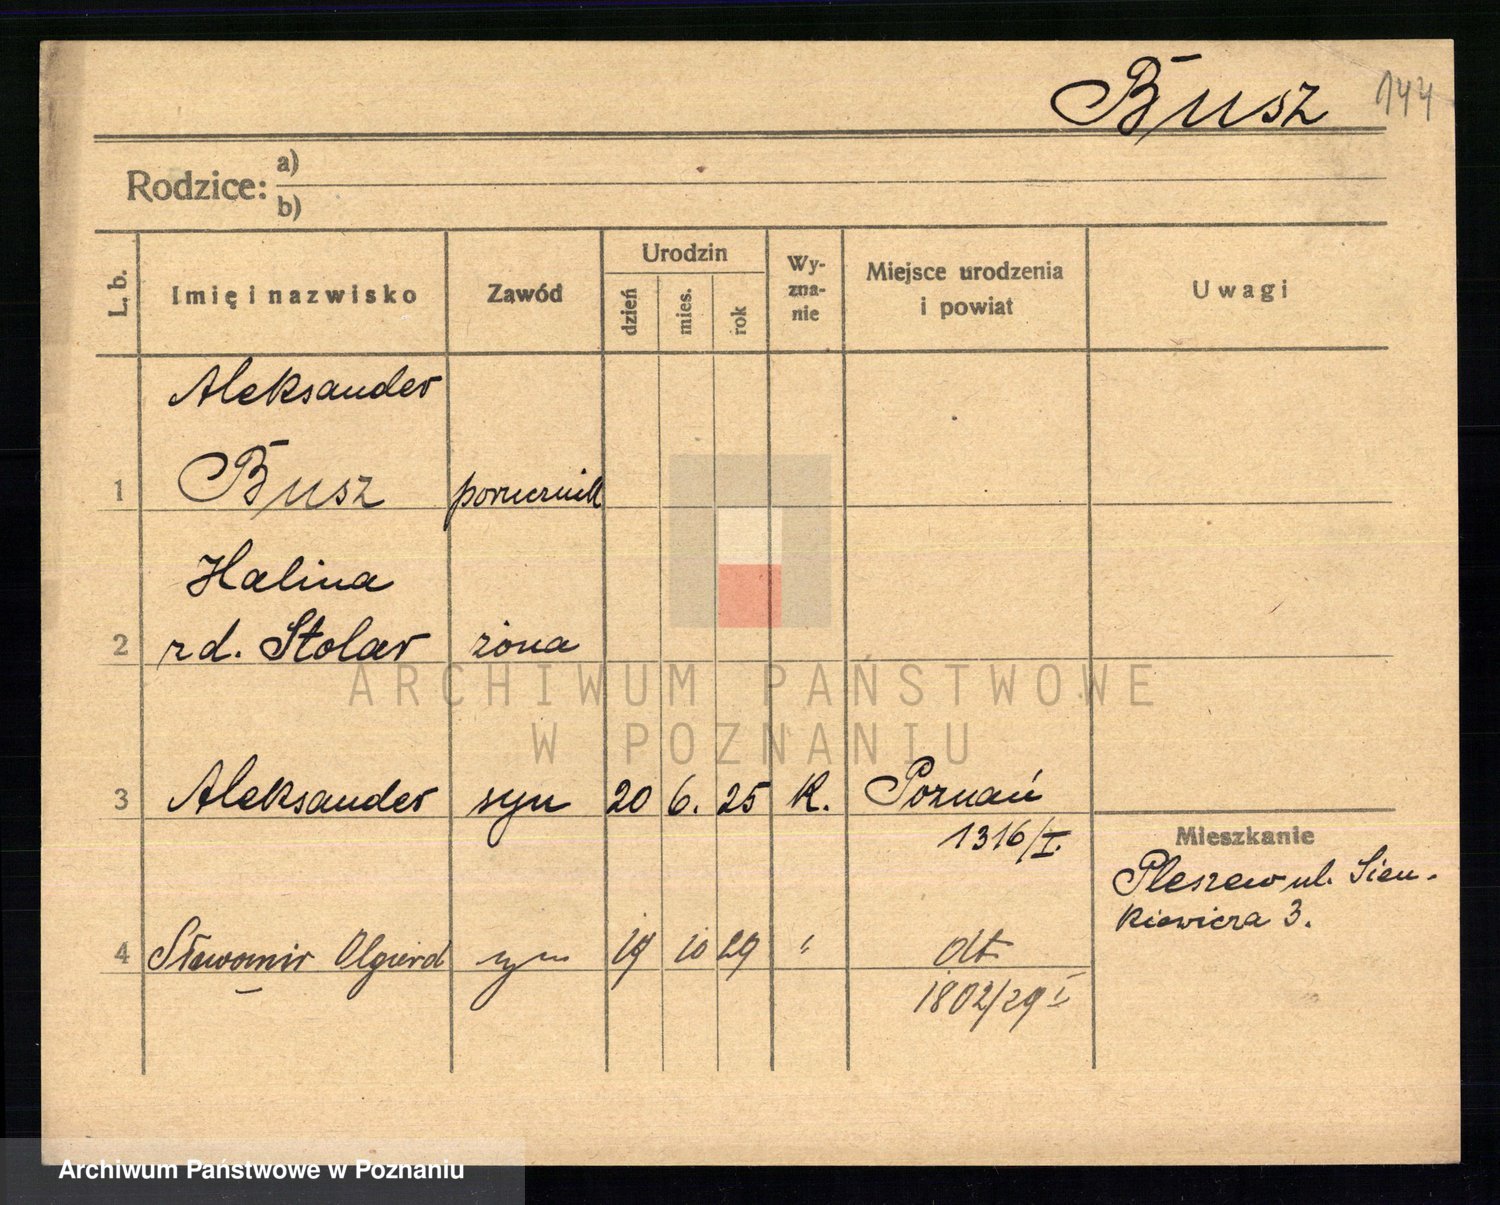 Busz 144
Rodzice: a)
b)
L. b.
Imię i nazwisko
Zawód
Urodzin
dzień
mies.
rok
Wy-
zna-
nie
Miejsce urodzenia
i powiat
Uwagi
Aleksander
1 Busz porucznik
Halina
2 rd. Stolar żona
3 Aleksander syn 20 6. 25 K. Poznań
1316/I.
Mieszkanie
Pleszew ul. Sien-
kiewicza 3.
4 Sławomir Olgierd syn 19 10 29 " dt
1802/29 I
ARCHIWUM PAŃSTWOWE
W POZNANIU
Archiwum Państwowe w Poznaniu